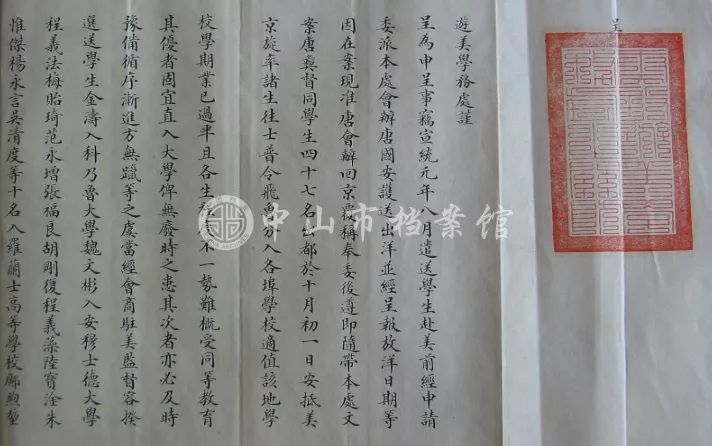 呈
遊美學務處謹
呈為申呈事竊宣統元年八月遣送學生赴美前經申請
委派本處會辦唐國安護送出洋並經呈報放洋日期等
因在案現准唐會辦回京覆稱奉委後遵即隨帶本處文
案唐彝督同學生四十七名出都於十月初一日安抵美
京旋率諸生往士普令飛魯分入各埠學校適值該地學
校學期業已過半且各生程不一勢難概受同等教育
其優者固宜直入大學俾無廢時之患其次者亦必及時
豫備循序漸進方無躐等之虞當經會商駐美監督容揆
選送學生金濤入科乃魯大學魏文彬入安穆士德大學
程義法梅貽琦范永增張福良胡剛復程義藻陸寶淦朱
惟傑楊永言吳清度等十名入羅蘭士高等學校鄺煦堃
中山市档案馆